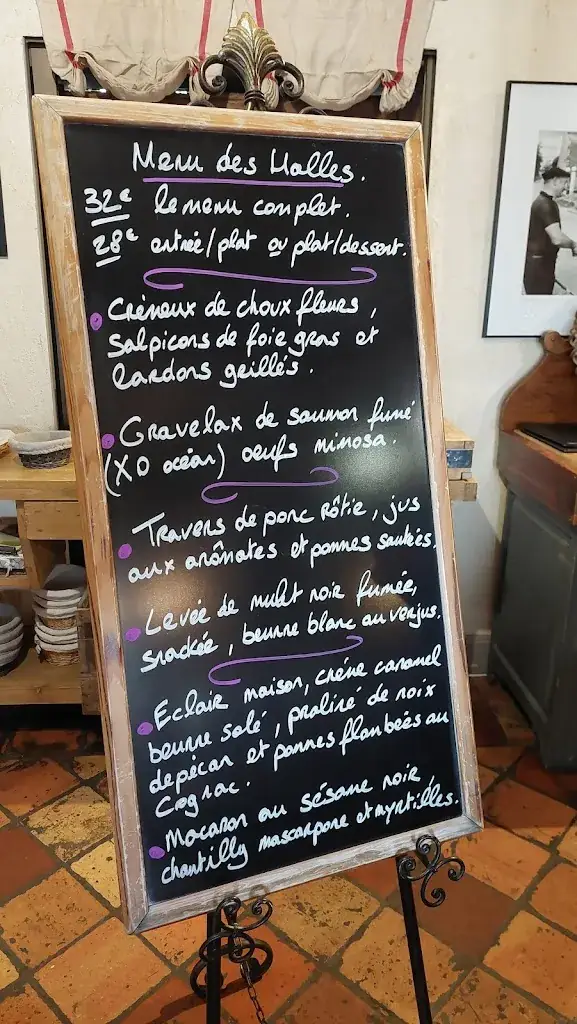 Menu des Halles.
32€ le menu complet.
28€ entrée/plat ou plat/dessert.
Crémeux de choux fleurs,
Salpicons de foie gras et
lardons grillés.
Gravelax de saumon fumé
(XO océan) oeufs mimosa.
Travers de porc rôtie, jus
aux arômates et pommes sautées.
Levée de mulet noir fumée,
snackée, beurre blanc au verjus.
Eclair maison, crème caramel
beurre salé, praliné de noix
depécan et pommes flambées au
Cognac.
Macaron au sésame noir,
chantilly mascarpone et myrtilles.